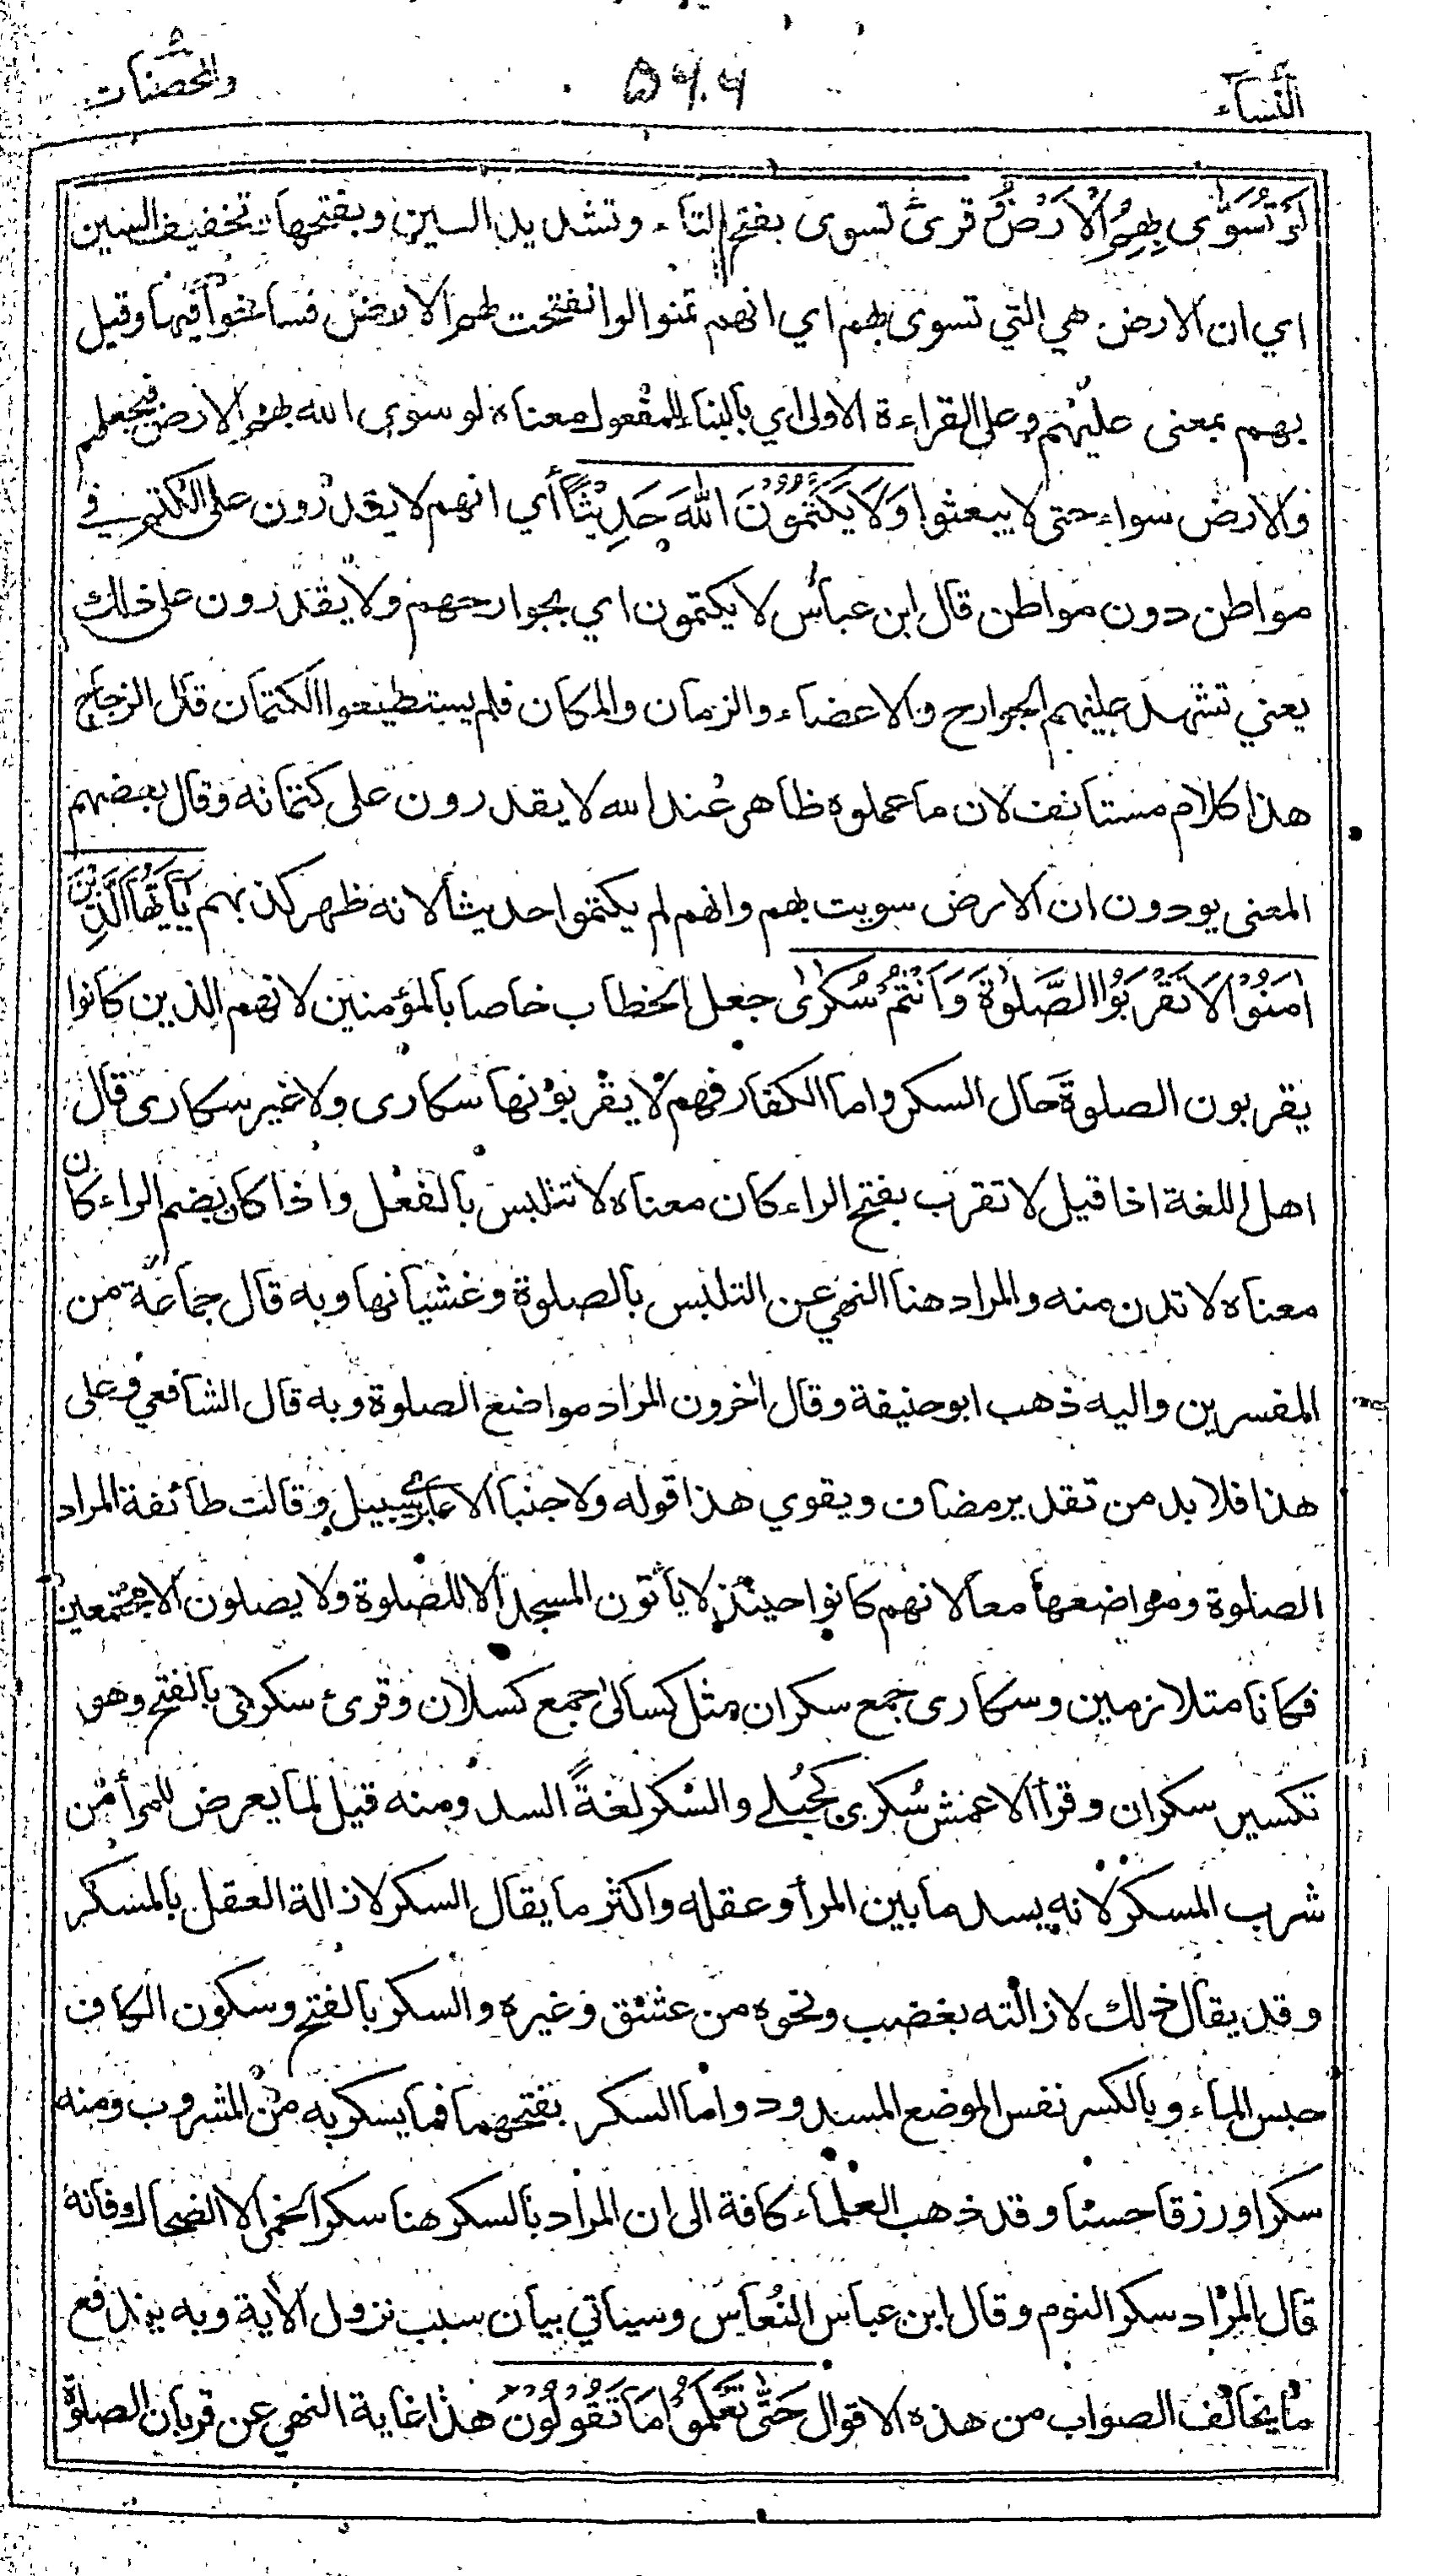 النساء ٥٦.٦ والمحصنات
لَوْ تُسَوّٰى بِهِمُ الْاَرْضُ قرئ تسوى بفتح التاء وتشديد السين وبفتحها وتخفيف السين
اي ان الارض هي التي تسوى بهم اي انهم تمنوا لو انفتحت لهم الارض فساخوا فيها وقيل
بهم بمعنى عليهم وعلى القراءة الاولى اي بالبناء للمفعول معناه لو سوى الله بهم الارض فيجعلهم
والارض سواء حتى لا يبعثوا وَلَا يَكْتُمُوْنَ اللهَ حَدِيْثًا أي انهم لا يقدرون على الكتم في
مواطن دون مواطن قال ابن عباس لا يكتمون اي بجوارحهم ولا يقدرون على ذلك
يعني تشهد عليهم الجوارح والاعضاء والزمان والمكان فلم يستطيعوا الكتمان قال الزجاج
هذا كلام مستانف لان ما عملوه ظاهر عند الله لا يقدرون على كتمانه وقال بعضهم
المعنى يودون ان الارض سويت بهم وانهم لم يكتموا حديثا لانه ظهر كذبهم يٰٓاَيُّهَا الَّذِيْنَ
اٰمَنُوْا لَا تَقْرَبُوا الصَّلٰوةَ وَاَنْتُمْ سُكٰرٰى جعل الخطاب خاصا بالمؤمنين لانهم الذين كانوا
يقربون الصلوة حال السكر واما الكفار فهم لا يقربونها سكارى ولا غير سكارى قال
اهل اللغة اذا قيل لا تقرب بفتح الراء كان معناه لا تتلبس بالفعل واذا كان بضم الراء كان
معناه لا تدن منه والمراد هنا النهي عن التلبس بالصلوة وغشيانها وبه قال جماعة من
المفسرين واليه ذهب ابو حنيفة وقال اٰخرون المراد مواضع الصلوة وبه قال الشافعي وعلى
هذا فلا بد من تقدير مضاف ويقوي هذا قوله ولا جنبا الا عابري سبيل وقالت طائفة المراد
الصلوة ومواضعها معا لانهم كانوا حينئذ لا يأتون المسجد الا للصلوة ولا يصلون الا مجتمعين
فكانا متلازمين وسكارى جمع سكران مثل كسالى جمع كسلان وقرئ سكرى بالفتح وهو
تكسير سكران وقرأ الاعمش سُكرى كحُبلى والسكر لغةً السد ومنه قيل لما يعرض للمرأ من
شرب المسكر لانه يسد ما بين المرأ وعقله واكثر ما يقال السكر لازالة العقل بالمسكر
وقد يقال ذلك لازالته بغضب ونحوه من عشق وغيره والسكر بالفتح وسكون الكاف
حبس الماء وبالكسر نفس الموضع المسدود واما السكر بفتحهما فما يسكر به من المشروب ومنه
سكرا ورزقا حسنا وقد ذهب العلماء كافة الى ان المراد بالسكر هنا سكر الخمر الا الضحاك فانه
قال المراد سكر النوم وقال ابن عباس النُعاس وسياتي بيان سبب نزول الاٰية وبه يندفع
ما يخالف الصواب من هذه الاقوال حَتّٰى تَعْلَمُوْا مَا تَقُوْلُوْنَ هذا غاية النهي عن قربان الصلوة